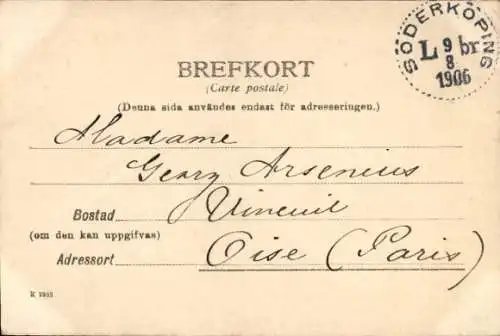 SÖDERKÖPING
L 9 br
8
1906
BREFKORT
(Carte postale)
(Denna sida användes endast för adresseringen.)
Madame
Georg Arsenius
Bostad Vineuil
(om den kan uppgifvas)
Adressort Oise (Paris)